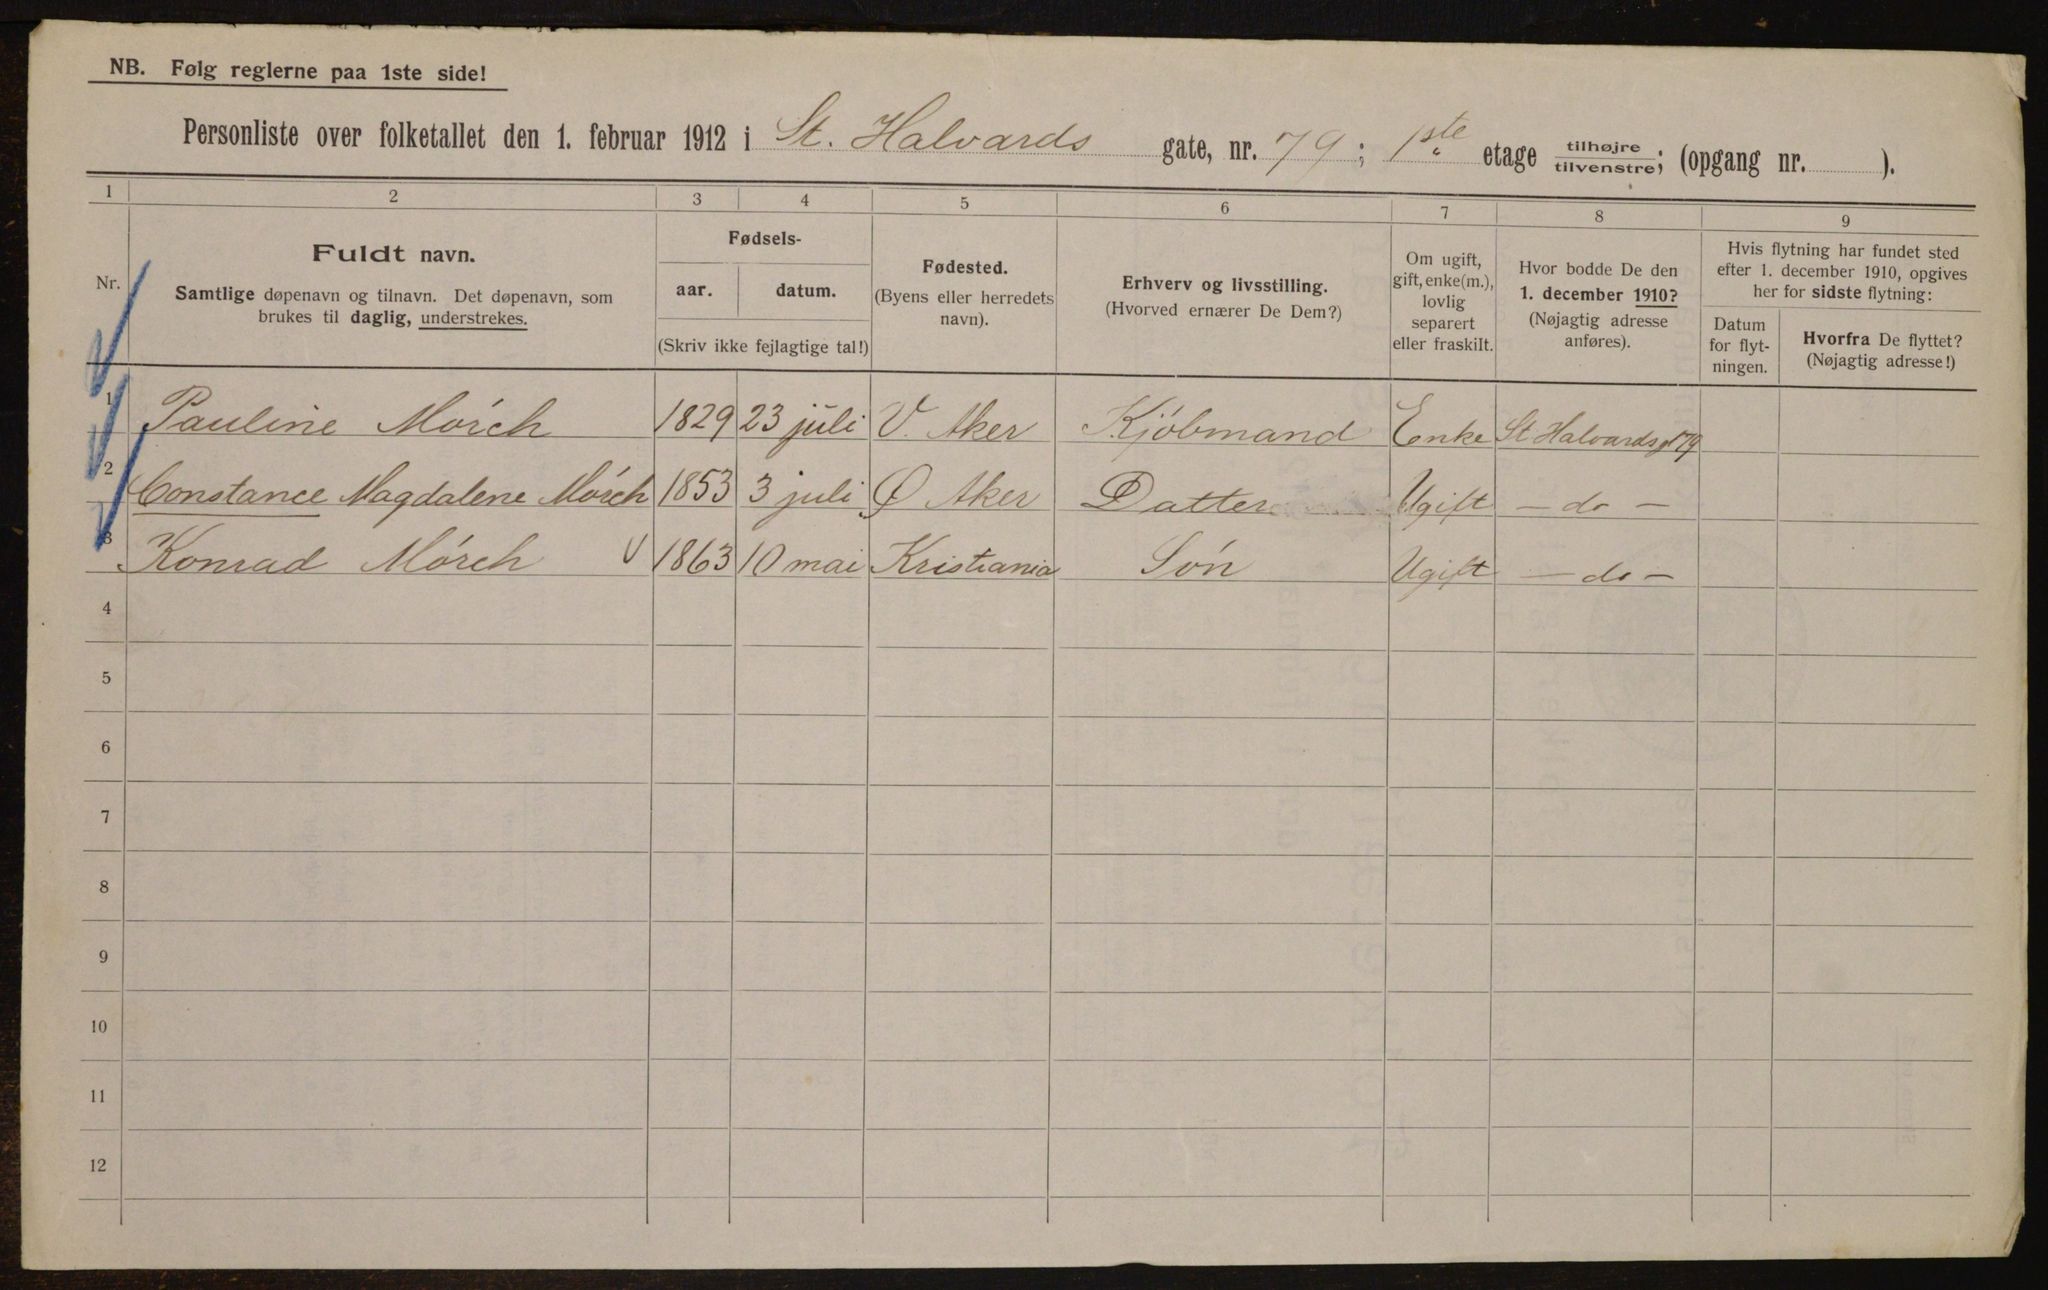 NB. Følg reglerne paa 1ste side!
Personliste over folketallet den 1. februar 1912 i St. Halvards gate, nr. 79; 1ste etage tilhøjre tilvenstre; (opgang nr. ).
1 2 3 4 5 6 7 8 9
Nr.
Fuldt navn.
Samtlige døpenavn og tilnavn. Det døpenavn, som
brukes til daglig, understrekes.
Fødsels-
aar. datum.
(Skriv ikke fejlagtige tal!)
Fødested.
(Byens eller herredets
navn).
Erhverv og livsstilling.
(Hvorved ernærer De Dem?)
Om ugift,
gift, enke(m.),
lovlig
separert
eller fraskilt.
Hvor bodde De den
1. december 1910?
(Nøjagtig adresse
anføres).
Hvis flytning har fundet sted
efter 1. december 1910, opgives
her for sidste flytning:
Datum
for flyt-
ningen.
Hvorfra De flyttet?
(Nøjagtig adresse!)
1 Pauline Mórch 1829 23 juli V. Aker Kjóbmand Enke St Halvardsg 79
2 Constance Magdalene Mórch 1853 3 juli Ø Aker Datter Ugift — do —
3 Konrad Mórch 1863 10 mai Kristiania Són Ugift — do —
4
5
6
7
8
9
10
11
12